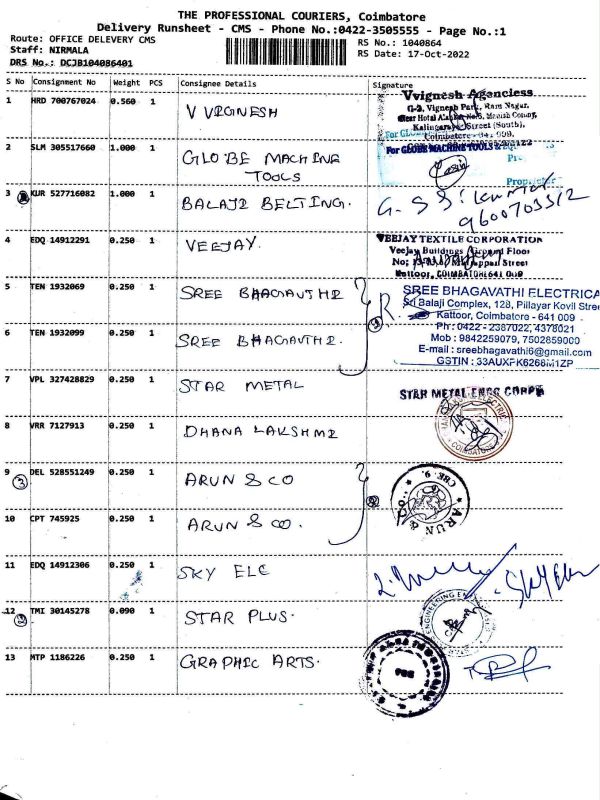 THE PROFESSIONAL COURIERS, Coimbatore
Delivery Runsheet - CMS - Phone No.:0422-3505555 - Page No.:1
Route: OFFICE DELEVERY CMS
RS No.: 1040864
Staff: NIRMALA
RS Date: 17-Oct-2022
DRS No.: DCJB104086401
S No Consignment No Weight PCS Consignee Details Signature
1 HRD 700767024 0.560 1 V VIGNESH
Vvignesh Agenciess
G-2, Vignesh Park, Ram Nagar,
Street (South),
2 SLM 305517660 1.000 1 GLOBE MACHINE
TOOLS
For GLOBE MACHINE TOOLS &
3 KUR 527716082 1.000 1 BALAJI BELTING.
9600703312
4 EDQ 14912291 0.250 1 VEEJAY.
VEEJAY TEXTILE CORPORATION
Veejay Buildings Ground Floor
Street
Kattoor, COIMBATORE 641 009
5 TEN 1932069 0.250 1 SREE BHAGAVTHI
SREE BHAGAVATHI ELECTRICA
Sri Balaji Complex, 128, Pillayar Kovil Stree
Kattoor, Coimbatore - 641 009
Ph : 0422 - 2387022, 4378021
Mob : 9842259079, 7502859000
E-mail : sreebhagavathi6@gmail.com
GSTIN : 33AUXPK6268M1ZP
6 TEN 1932099 0.250 1 SREE BHAGAVTHI.
7 VPL 327428829 0.250 1 STAR METAL
STAR METAL ENGG CORPN
8 VRR 7127913 0.250 1 DHANA LAKSHMI
COIMBATORE
9 DEL 528551249 0.250 1 ARUN & CO
ARUN & CO
10 CPT 745925 0.250 1 ARUN & CO.
11 EDQ 14912306 0.250 1 SKY ELE
12 TMI 30145278 0.090 1 STAR PLUS.
ENGINEERING
13 MTP 1186226 0.250 1 GRAPHIC ARTS.